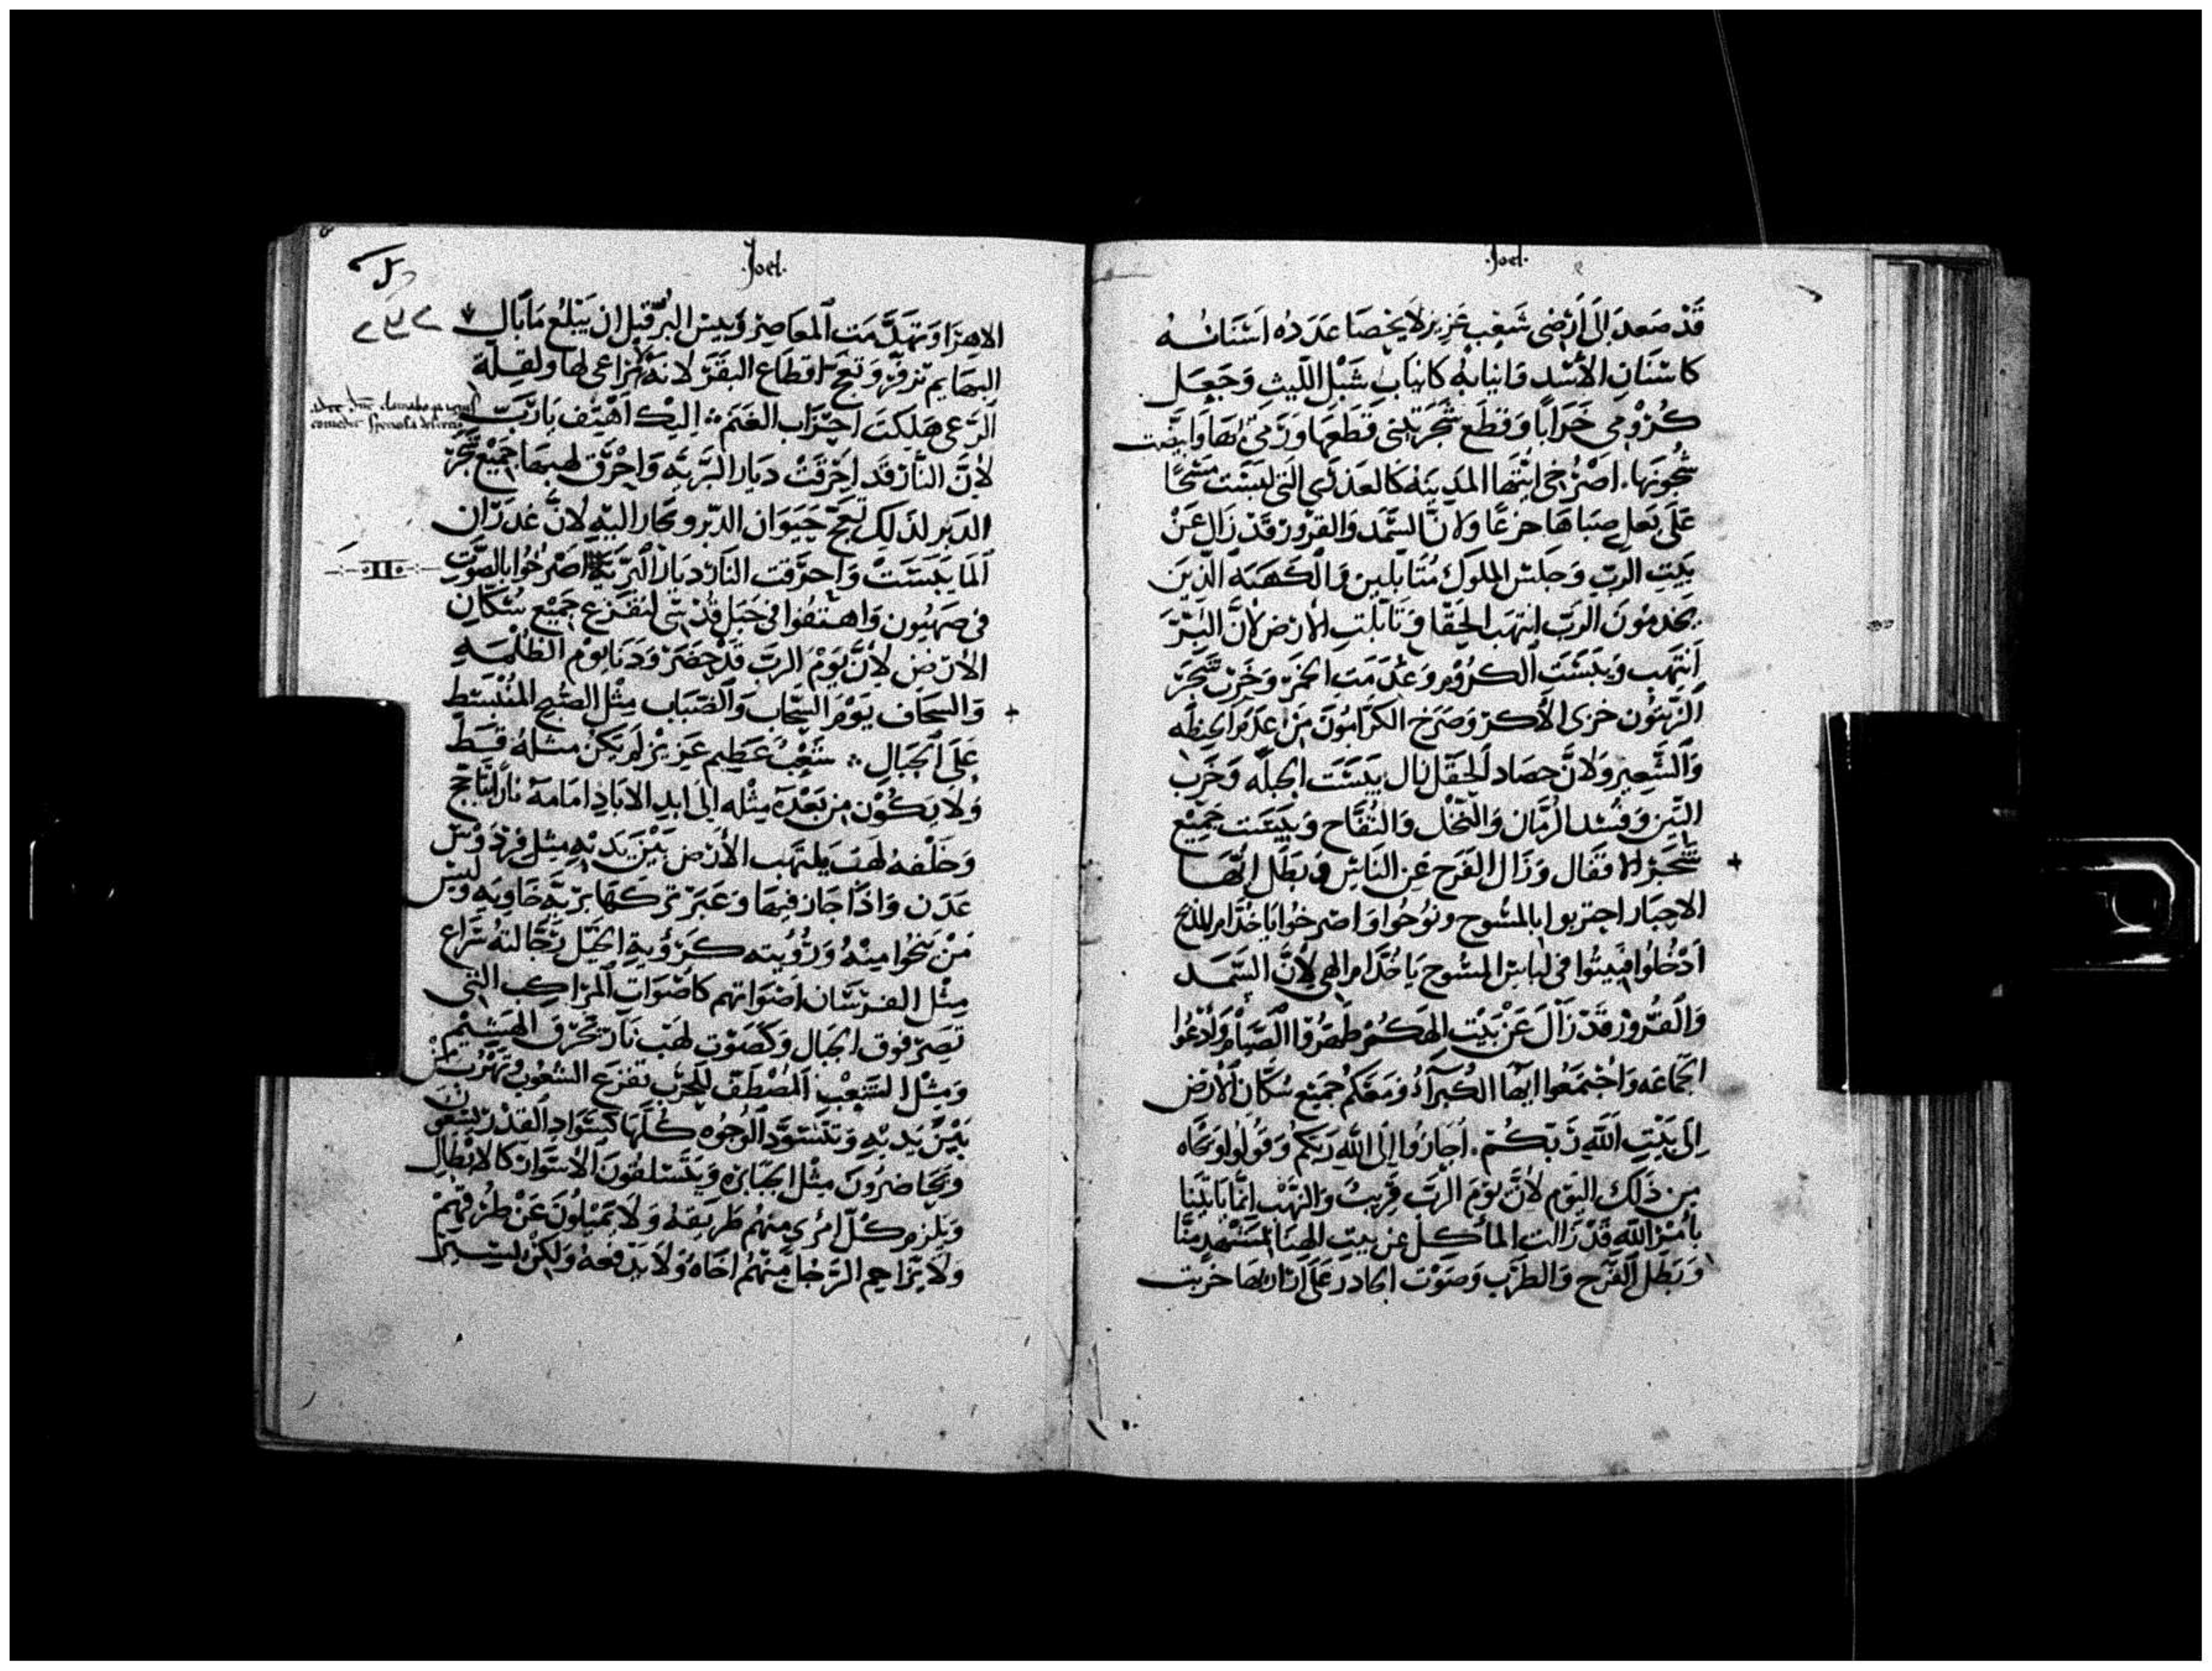 ·Joel·
قَدْ صَعِدَ إلَى أَرْضِى شَعْب عَزِيز لَا يُحْصَا عَدَدُه اَسْنَانُهُ
كَاسْنَانِ الأَسْدِ وَانيابُهُ كَانيَابِ شَبْلِ اللَّيث وَجَعَلَ
كُرُوْمِى خَرَابًا وَقطَع شَجَرَ تِينى قَطَعَهَا وَرَمِىْ بهَا وَابيَضَّت
غُصُونَها. اصْرُخى ايَّتهَا المَدينَه كَالعَذرَى الَتى لَبسَت مسْحًا
عَلَى بَعلِ صِبَاهَا جزعًا وَلانَّ السَّمَد وَالقرُورَ قَدْ زَال عَنْ
بَيتِ الرَبِّ وَجلسَ الملوكَ مُتَابلين وَالكَهَنَه الَّذينَ
يَخدمُونَ الرَبّ انتهَب الحَقل وَتَابلَت الأرْض لأنَّ البُرَّ
اَنتهَب وَيَبسَت الكرُوْم وَعُدمَت الخمْر وَخَرب شَجَر
الزَيتون خزى الأكرَ وَصَرَخ الكَرَّامُونَ مِن عدَم الحنطَه
وَالشَّعِير وَلانَّ حصَاد الحَقل بَال يَبسَت الجلَّه وَخَرب
التّين وَفسَد الرمَّان وَالنَخْل وَالتُفَّاح وَيَبسَت جَمِيْع
شَجَر الافقَال وَزَال الفَرح عَن النَاسِ وَبَطَل ايُّهَا
الاحبَار احتزموا بالمسُوح ونُوحُوا وَاصرخُوا يَا خُدَّام المذبح
اَدْخُلوا فبيتُوا فى لبَاسِ المسُوح يَا خُدَّام الهى لِأنَّ السَّمَد
وَالقُرُورَ قَدْ زَالَ عَنْ بَيْت الهَكُمْ طَهِّرُوا الصيَام وَادْعُوا
الجمَاعَه وَاجْتمعُوا ايّهَا الكُبَرآءُ وَمَعَكُمْ جَمِيع سُكَّان الأرْض
إلَى بَيْتِ اللَّهِ رَبّكُمْ. اجَارُوا إلَى اللَّهِ رَبكُمْ وَقُولُوا لوَيحَاه
مِن ذَلكَ اليَوْم لأنَّ يَوْمَ الرَبّ قَرِيبٌ وَالنَهْب انمَّا يَاتينَا
بأمْر اللَّه قَدْ زَالت المأكل عن بيت الهنَا المسْتَهد منَّا
وَبَطَل الفَرَح وَالطرَب وَصَوْت الجادر عَلَى اثَارهَا خربت
·Joel·
الاهرَا وَتهَدَّمَت المعَاصِرْ وَيَبس البُرّ قبل ان يَبْلغ مَا بَال
البهَايم تزفِر وَتعَجّ اقطَاع البَقَر لانهُ لا رَاعى لها ولقِلَّة
الرَّعى هَلكَت احزَاب الغَنَم ※ إليْكَ اَهْتِف يَا رَبّ
لأنَّ النَّار قَد احْرَقَتْ ديَار البَرّيَّه وَاحْرَق لهيبهَا جَمِيْع شَجَر
الدَبر لذَلِك تعَجّ حَيوَان الدَبر وتجَار اليْه لأنَّ غُدرَان
اَلمَا يَبسَتْ وَاحرَقت النَار ديَار البرّيَّة اصْرخُوا بالصَّوت
·II·
فى صَهيُون وَاهتفُوا فى جَبَل قُدْسى لتفزع جَمِيْع سُكَّان
الأرْض لأنَّ يَوْمَ الرَبّ قَدْ حَضَرَ وَدَنا يَوْم الظلْمَه
وَالسحَاف يَوْم السَّحَاب وَالضَبَاب مِثْل الصُبْح المُنْبَسَط
عَلَى الجبَالِ ※ شَعْبٌ عَظيم عَزيز لَم يَكُنْ مثلهُ قَطّ
وَلا يَكُوْن من بَعْده مِثْله إلَى ابدِ الابَادِ امَامَهُ نار تتأجَّجّ
وَخَلْفهُ لهَب يَلتهَب الأرْض بَيْنَ يَدَيْهِ مِثل فِرْدَوْس
عَدَن وَاذَا جَاز فيهَا وَعَبَرَ تركهَا بريَّه خَاوِيَه وَليس
مَنْ يَنجُوا مِنْهُ وَرُؤيته كَرُؤيةِ الخيْل رَجَّالتهُ سَرَاع
مِثْل الفرسَان اَصْوَاتهم كَاصْوَاتِ المرَاكب التى
تصِرّ فوق الجبَال وَكَصَوْت لهَب نَار تحرق الهَشِيم
وَمِثْل الشَعْب المصْطَف للحَرْب تفزَع الشعُوب
بَيْنَ يَديهِ وَتَسْوَدّ الوُجُوه كُلّهَا كسَوَاد القدْر
وَيحَاضرُونَ مِثْل الجَبَابرَه وَيَتَسَلقُونَ الأسْوَار كَالابْطَال
وَيَلزم كُلّ امرى منهُم طَرِيقهُ وَلَا يَميلُونَ عَنْ طُرُقهم
وَلَا يزَاحِم الرَجُل منْهُم اخَاهُ وَلَا يَدْفعهُ وَلكنْ يَسِيرْ